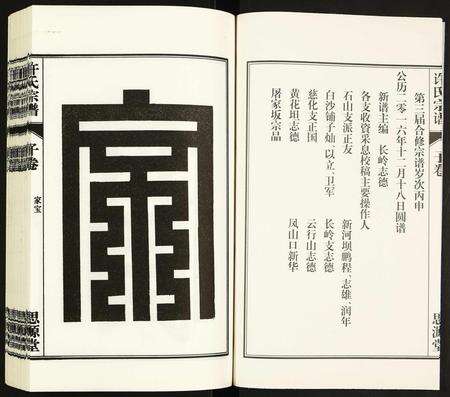 许氏宗谱
子卷
思源堂
第三届合修宗谱岁次丙申
公历二〇一六年十二月十八日圆谱
新谱主编 长岭志德
各支收资采息校稿主要操作人
石山支派正友 新河坝鹏程、志雄、润年
白沙铺子灿、以立、卫军 长岭支志德
慈化支正国 云行山志德
黄花坦志德 凤山口新华
屠家坂宗品
许氏宗谱
子卷
家宝
思源堂